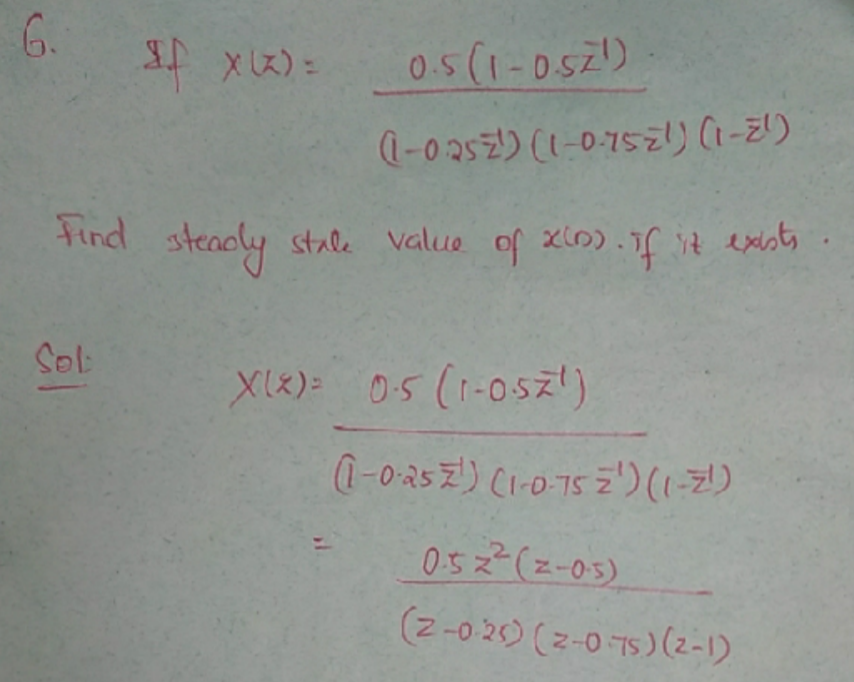 6. If X(z) = 0.5(1-0.5z⁻¹)
(1-0.25z⁻¹)(1-0.75z⁻¹)(1-z⁻¹)
Find steady state value of x(n). if it exists.
Sol:
X(z)= 0.5 (1-0.5z⁻¹)
(1-0.25z⁻¹)(1-0.75z⁻¹)(1-z⁻¹)
= 0.5 z²(z-0.5)
(z-0.25)(z-0.75)(z-1)